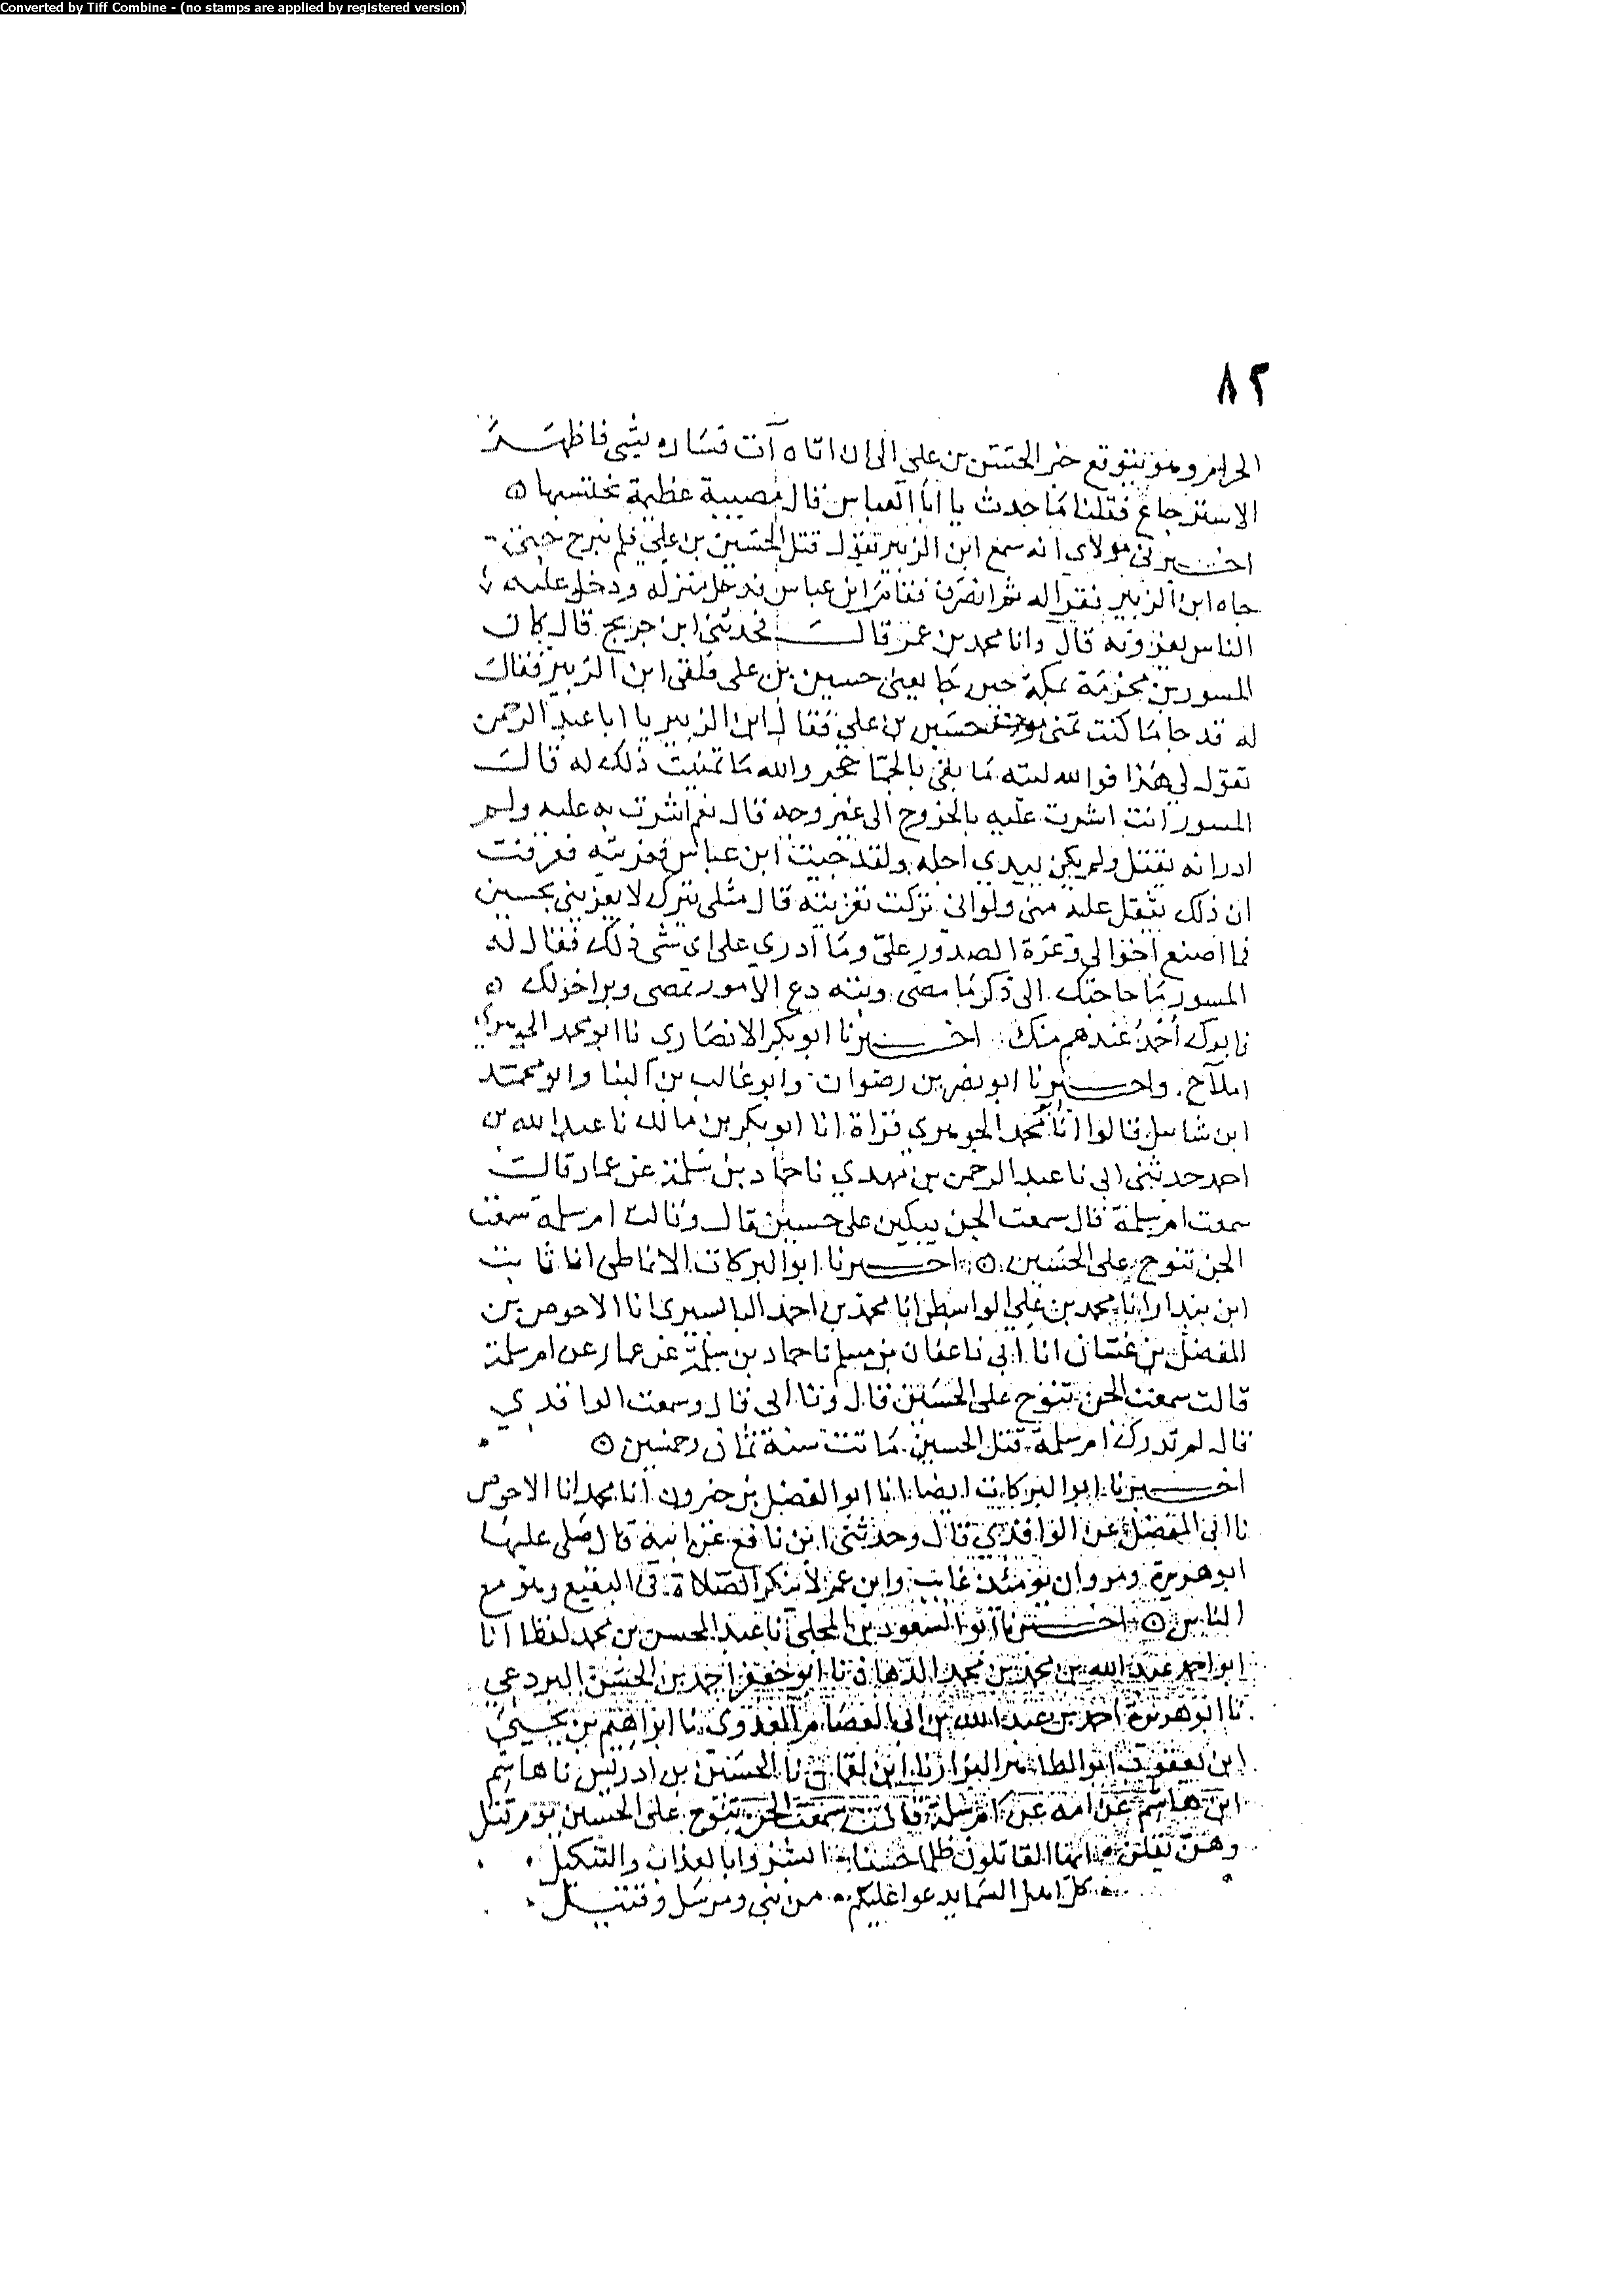 Converted by Tiff Combine - (no stamps are applied by registered version)
٨٢
الحرام وهو يتوقع خبر الحسين بن علي الى ان اتاه آت فساره بشي فاظهر
الاسترجاع فقلنا ما حدث يا ابا العباس قال مصيبة عظيمة نحتسبها
اخبرني مولاي انه سمع ابن الزبير يقول قتل الحسين بن علي فلم نبرح حتى
جاه ابن الزبير فعزاه ثم انصرف فقام ابن عباس فدخل منزله ودخل عليه
الناس يعزونه قال وانا محمد بن عمر قال فحدثني ابن جريج قال كان
المسور بن مخرمة بمكة حين جا نعي حسين بن علي فلقي ابن الزبير فقال
له قد جا ما كنت تمنى موت حسين بن علي فقال ابن الزبير يا ابا عبد الرحمن
تقول لي هذا فوالله ليته ما بقي بالجما حجر والله ما تمنيت ذلك له قال
المسور انت اشرت عليه بالخروج الى غير وجه قال نعم اشرت به عليه ولم
ادر انه يقتل ولم يكن بيدي اجله ولقد جيت ابن عباس فعزيته فعرفت
ان ذلك يثقل عليه مني ولو اني تركت تعزيته قال مثلي يترك لا يعزيني بحسين
فما اصنع اخوالي وغرة الصدور علي وما ادري على اي شي ذلك فقال له
المسور ما حاجتك الى ذكر ما مضى وبثه دع الامور تمضي وبر اخوالك
فابوك احمد عندهم منك اخبرنا ابو بكر الانصاري نا ابو محمد الجوهري
املآ ح واخبرنا ابو نصر بن رضوان وابو غالب بن البنا وابو محمد
ابن شاتيل قالوا انا محمد الجوهري قراة انا ابو بكر بن مالك نا عبد الله بن
احمد حدثني ابي نا عبد الرحمن بن مهدي نا حماد بن سلمة عن عمار قال
سمعت ام سلمة قال سمعت الجن يبكين على حسين قال وقالت ام سلمة سمعت
الجن تنوح على الحسين اخبرنا ابو البركات الانماطي انا ثابت
ابن بندار انا محمد بن علي الواسطي انا محمد بن احمد البابسيري انا الاحوص بن
المفضل بن غسان انا ابي نا عفان بن مسلم نا حماد بن سلمة عن عمار عن ام سلمة
قالت سمعت الجن تنوح على الحسين قال ونا ابي قال وسمعت الواقدي
قال لم تدرك ام سلمة قتل الحسين ماتت سنة ثمان وخمسين
اخبرنا ابو البركات ايضا انا ابو الفضل بن خيرون انا محمد انا الاحوص
نا ابي المفضل عن الواقدي قال وحدثني ابن نافع عن ابيه قال صلى عليها
ابو هريرة ومروان يومئذ غايب وابن عمر لا ينكر الصلاة في البقيع وهو مع
الناس اخبرنا ابو السعود بن المجلي نا عبد المحسن بن محمد لفظا انا
ابو احمد عبد الله بن محمد بن محمد الدهان نا ابو جعفر احمد بن الحسن البردعي
نا ابو هريرة احمد بن عبد الله بن ابي العصام العدوي نا ابراهيم بن يحيى
ابن يعقوب ابو الطاهر البزاز نا ابن لقمان نا الحسين بن ادريس نا هاشم
ابن هاشم عن امه عن ام سلمة قالت سمعت الجن تنوح على الحسين يوم قتل
وهن يقلن ايها القاتلون ظلما حسينا ابشروا بالعذاب والتنكيل
كل اهل السما يدعوا عليكم من نبي ومرسل وقتيل